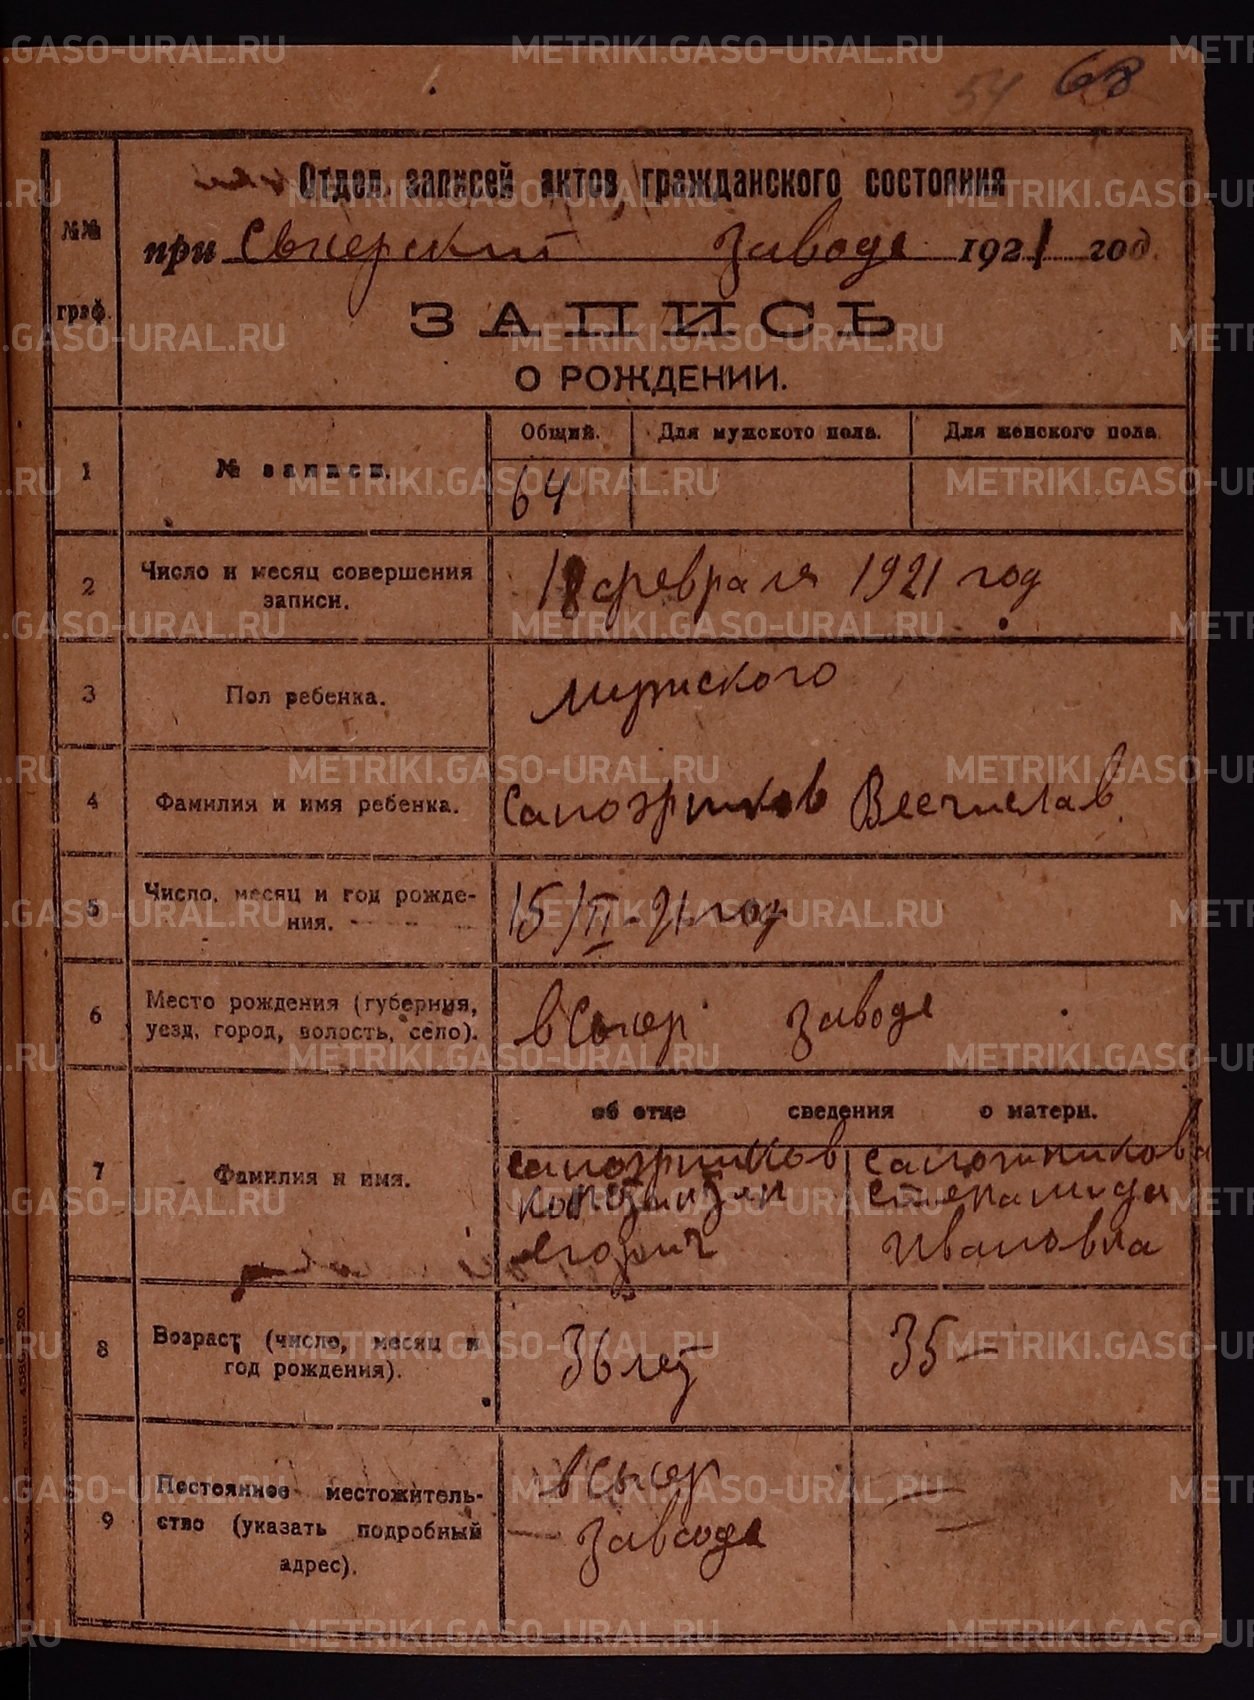 54 68
Отдел записей актов гражданского состояния
№№ граф.
при Сысерский заводе 1921 год.
ЗАПИСЬ
О РОЖДЕНИИ.
1 № записи. Общий. Для мужского пола. Для женского пола.
64
2 Число и месяц совершения записи. 18 февраля 1921 год
3 Пол ребенка. мужского
4 Фамилия и имя ребенка. Сапожников Весчислав.
5 Число, месяц и год рождения. 15/II-21 год
6 Место рождения (губерния, уезд, город, волость, село). в Сысер заводе
об отце сведения о матери.
7 Фамилия и имя. сапожников сапожникова
Ивановна
8 Возраст (число, месяц и год рождения). 36 лет 35 —
9 Постоянное местожительство (указать подробный адрес). в Сысер
заводе
METRIKI.GASO-URAL.RU